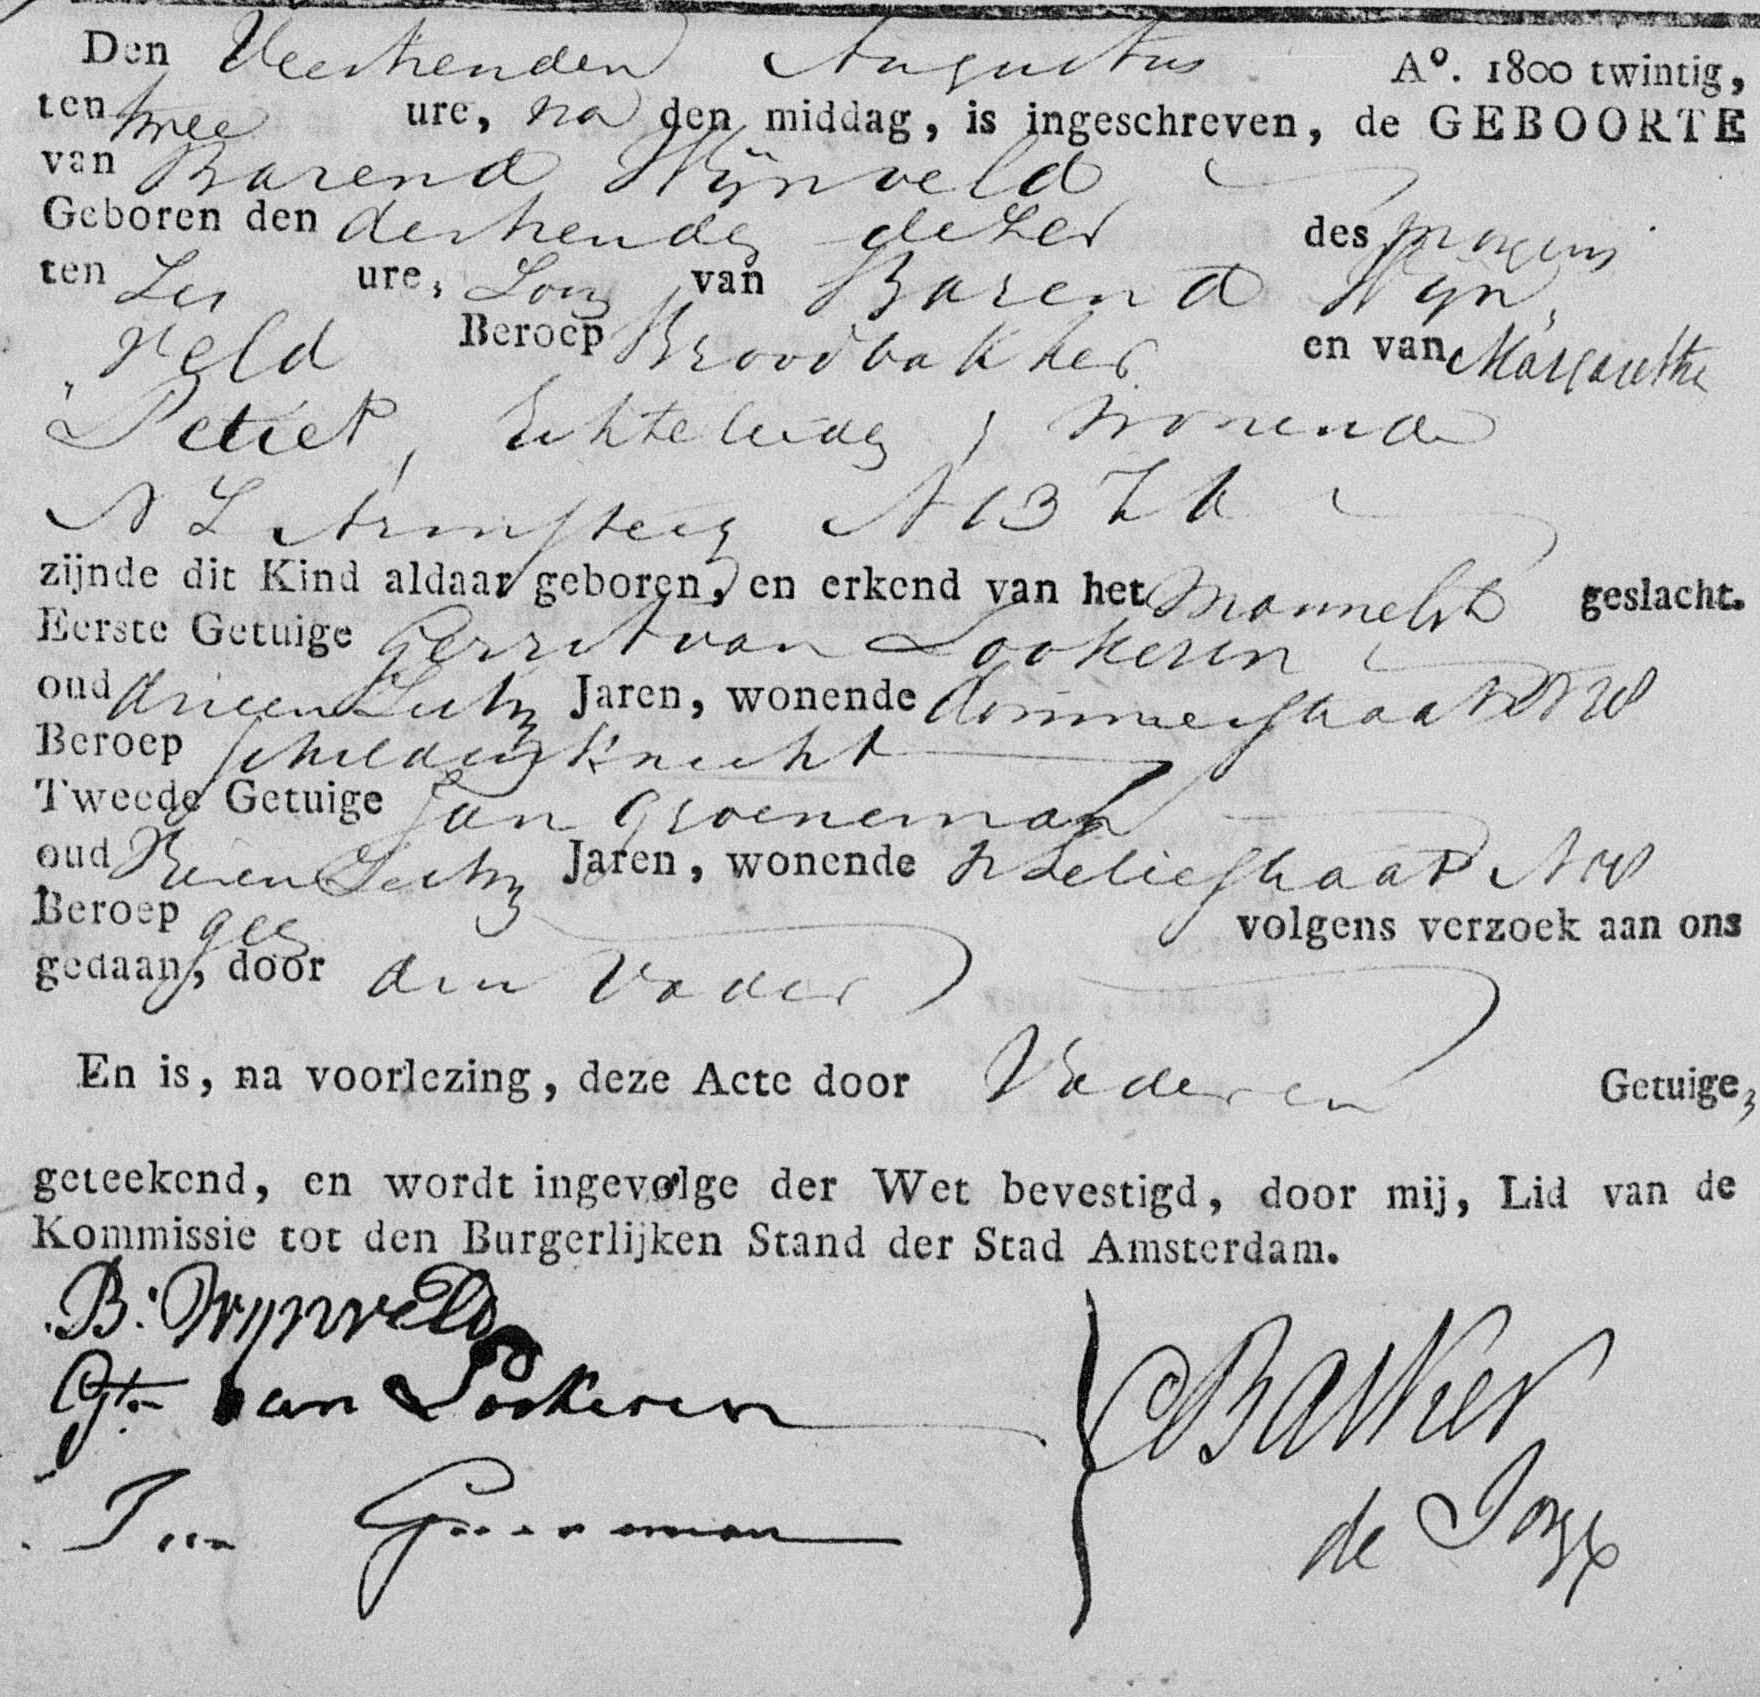 Den Veertienden Augustus A°. 1800 twintig,
ten twee ure, na den middag, is ingeschreven, de GEBOORTE
van Barend Wijnveld
Geboren den dertiende dezer des morgens
ten Zes ure, Zoon van Barend Wijn,
veld Beroep Broodbakker en van Margaretha
Petiet, Echtelieden, wonende
N Z Armsteeg N 13 Z k
zijnde dit Kind aldaar geboren, en erkend van het Mannelijk geslacht.
Eerste Getuige Gerrit van Lookeren
oud drieen Jaren, wonende
Beroep Schilders Knecht
Tweede Getuige Jan Groeneman
oud Jaren, wonende Leliestraat N
Beroep geen volgens verzoek aan ons
gedaan, door den Vader
En is, na voorlezing, deze Acte door Vader en Getuige,
geteekend, en wordt ingevolge der Wet bevestigd, door mij, Lid van de
Kommissie tot den Burgerlijken Stand der Stad Amsterdam.
B: Wijnveld
Gt. van Lookeren
Jan Groeneman
Bakker
de Jonge